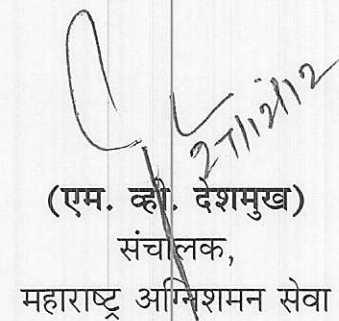 27/12/12
(एम. व्ही. देशमुख)
संचालक,
महाराष्ट्र अग्निशमन सेवा